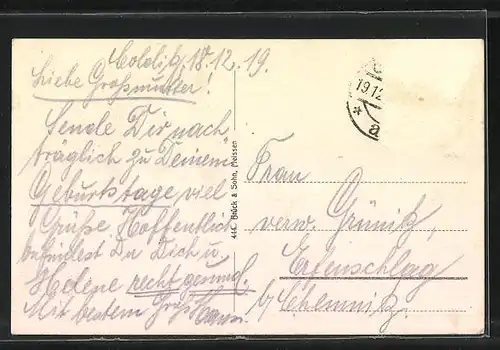 Colditz, 18.12.19.
Liebe Großmutter!
Sende Dir nach
träglich zu Deinem
Geburtstage viel
Grüße. Hoffentlich
befindest Du Dich u.
Helene recht gesund.
Mit bestem Gruß Hans.
444 Brück & Sohn, Meissen
19.12
* a
Frau
verw. Grünitz,
Erfenschlag
b/ Chemnitz.